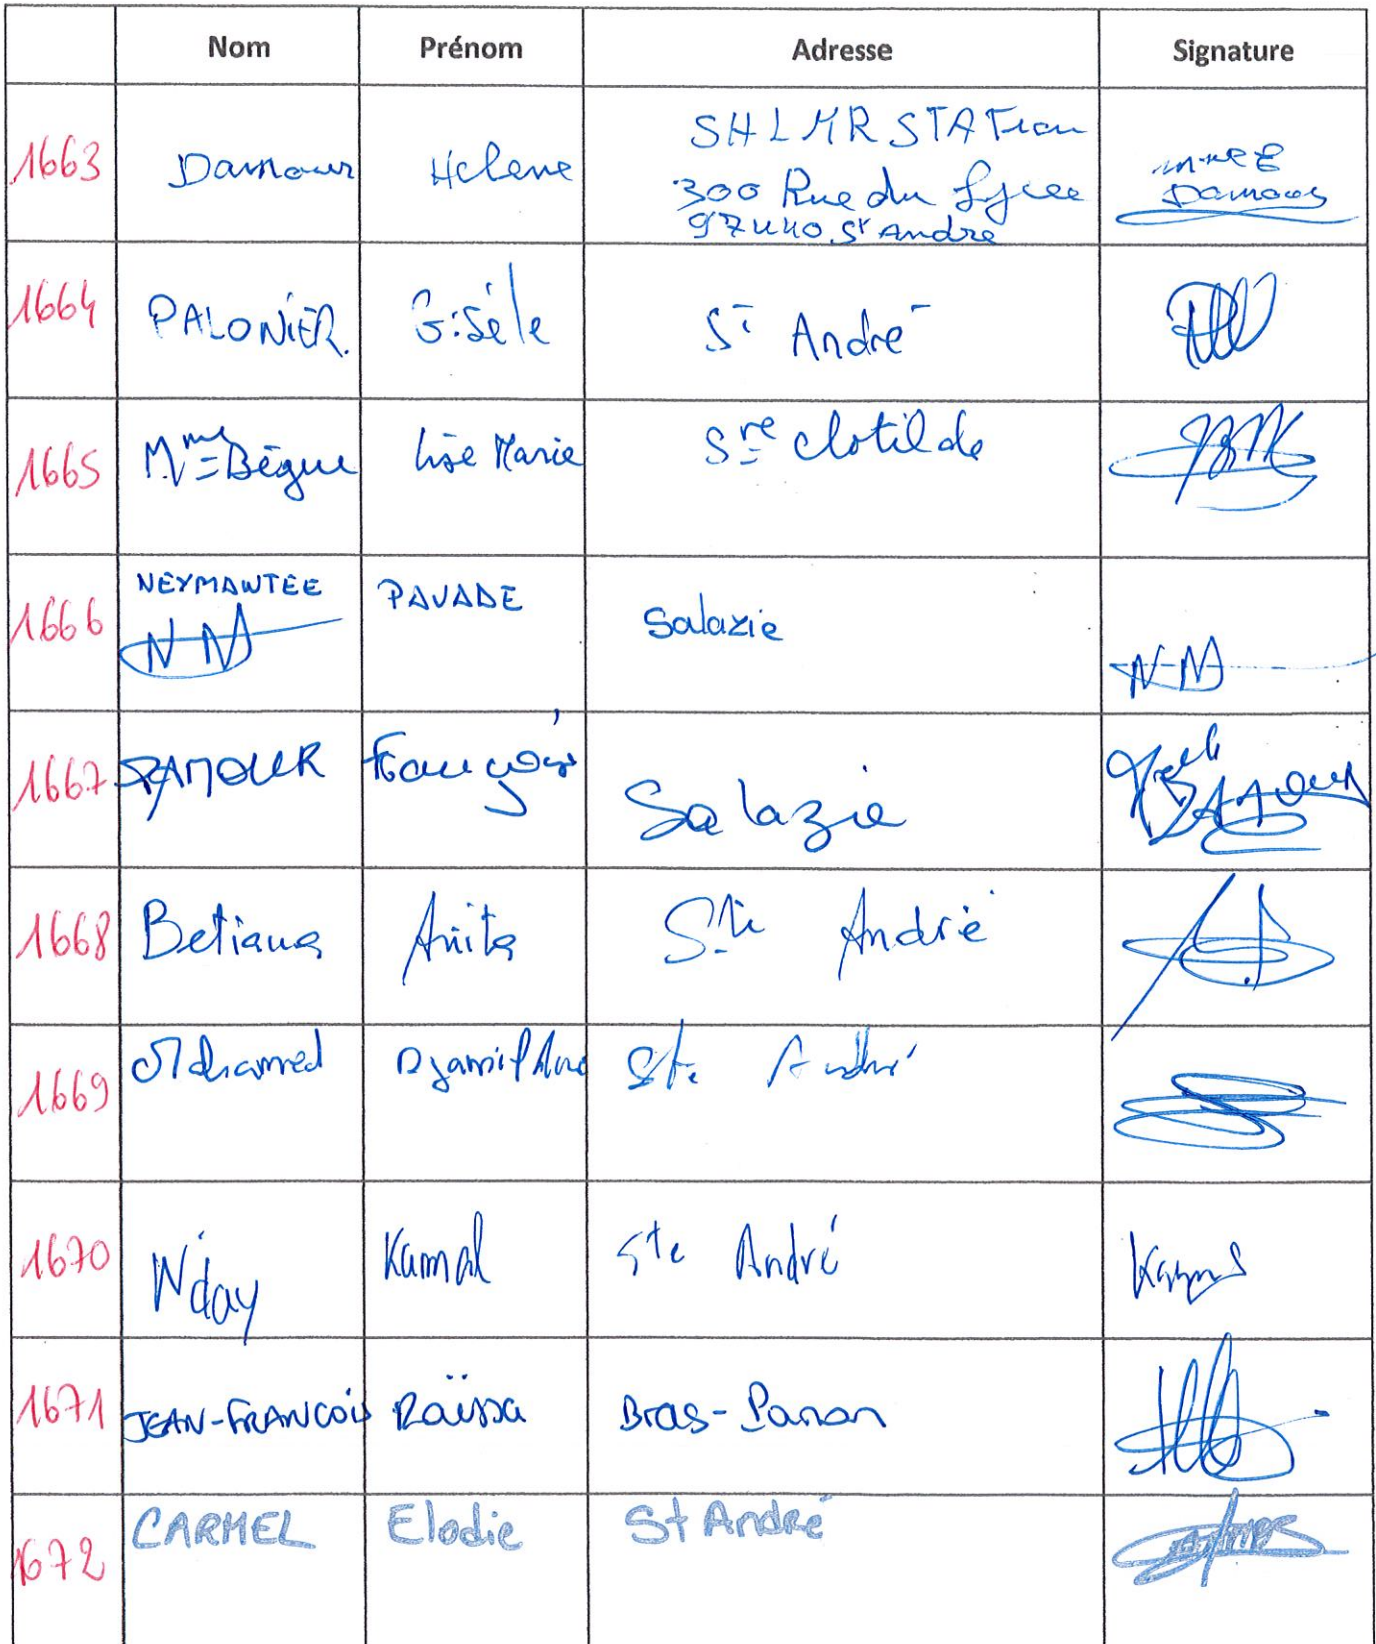 Nom Prénom Adresse Signature
1663 Damour Helene SHLMR STATion
300 Rue du Lycee
97440 St Andre
Mme
Damour
1664 PALONIER. Gisèle St André
1665 Mme Bègue Lise Marie Ste Clotilde
1666 NEYMAWTEE PAVADE Salazie
1667 DAMOUR François Salazie
1668 Betiana Anita Ste André
1669 Mohamed Ste André
1670 N'day Kamal Ste André
1671 JEAN-FRANCOIS Raïssa Bras-Panon
1672 CARMEL Elodie St André